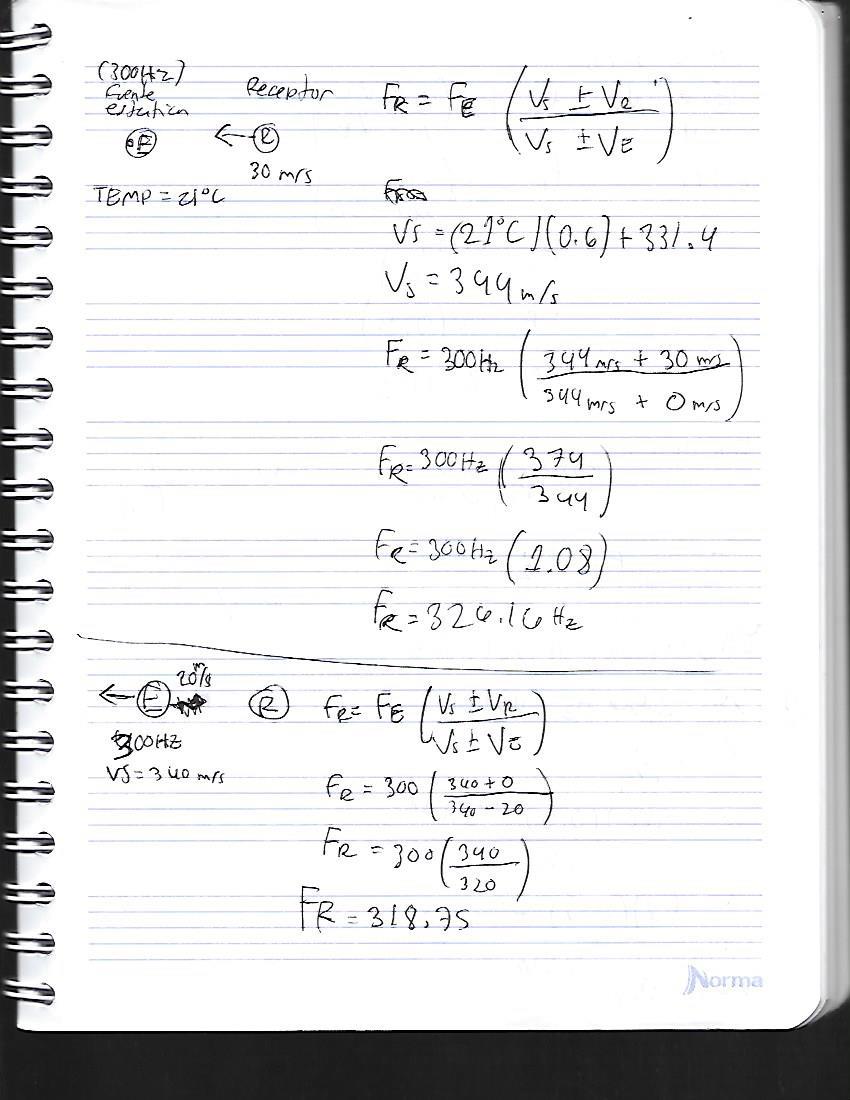 (300Hz)
fuente Receptor
estatica
F ← R
30 m/s
TEMP = 21°C
FR = FE (Vs ± VR / Vs ± VE)
Vs = (21°C)(0.6) + 331.4
Vs = 344 m/s
FR = 300Hz (344 m/s + 30 m/s / 344 m/s + 0 m/s)
FR = 300Hz (374 / 344)
FR = 300Hz (1.08)
FR = 326.16 Hz
20 m/s
← E R
300Hz
VS = 340 m/s
FR = FE (Vs ± VR / Vs ± VE)
FR = 300 (340 + 0 / 340 - 20)
FR = 300 (340 / 320)
FR = 318.75
Norma